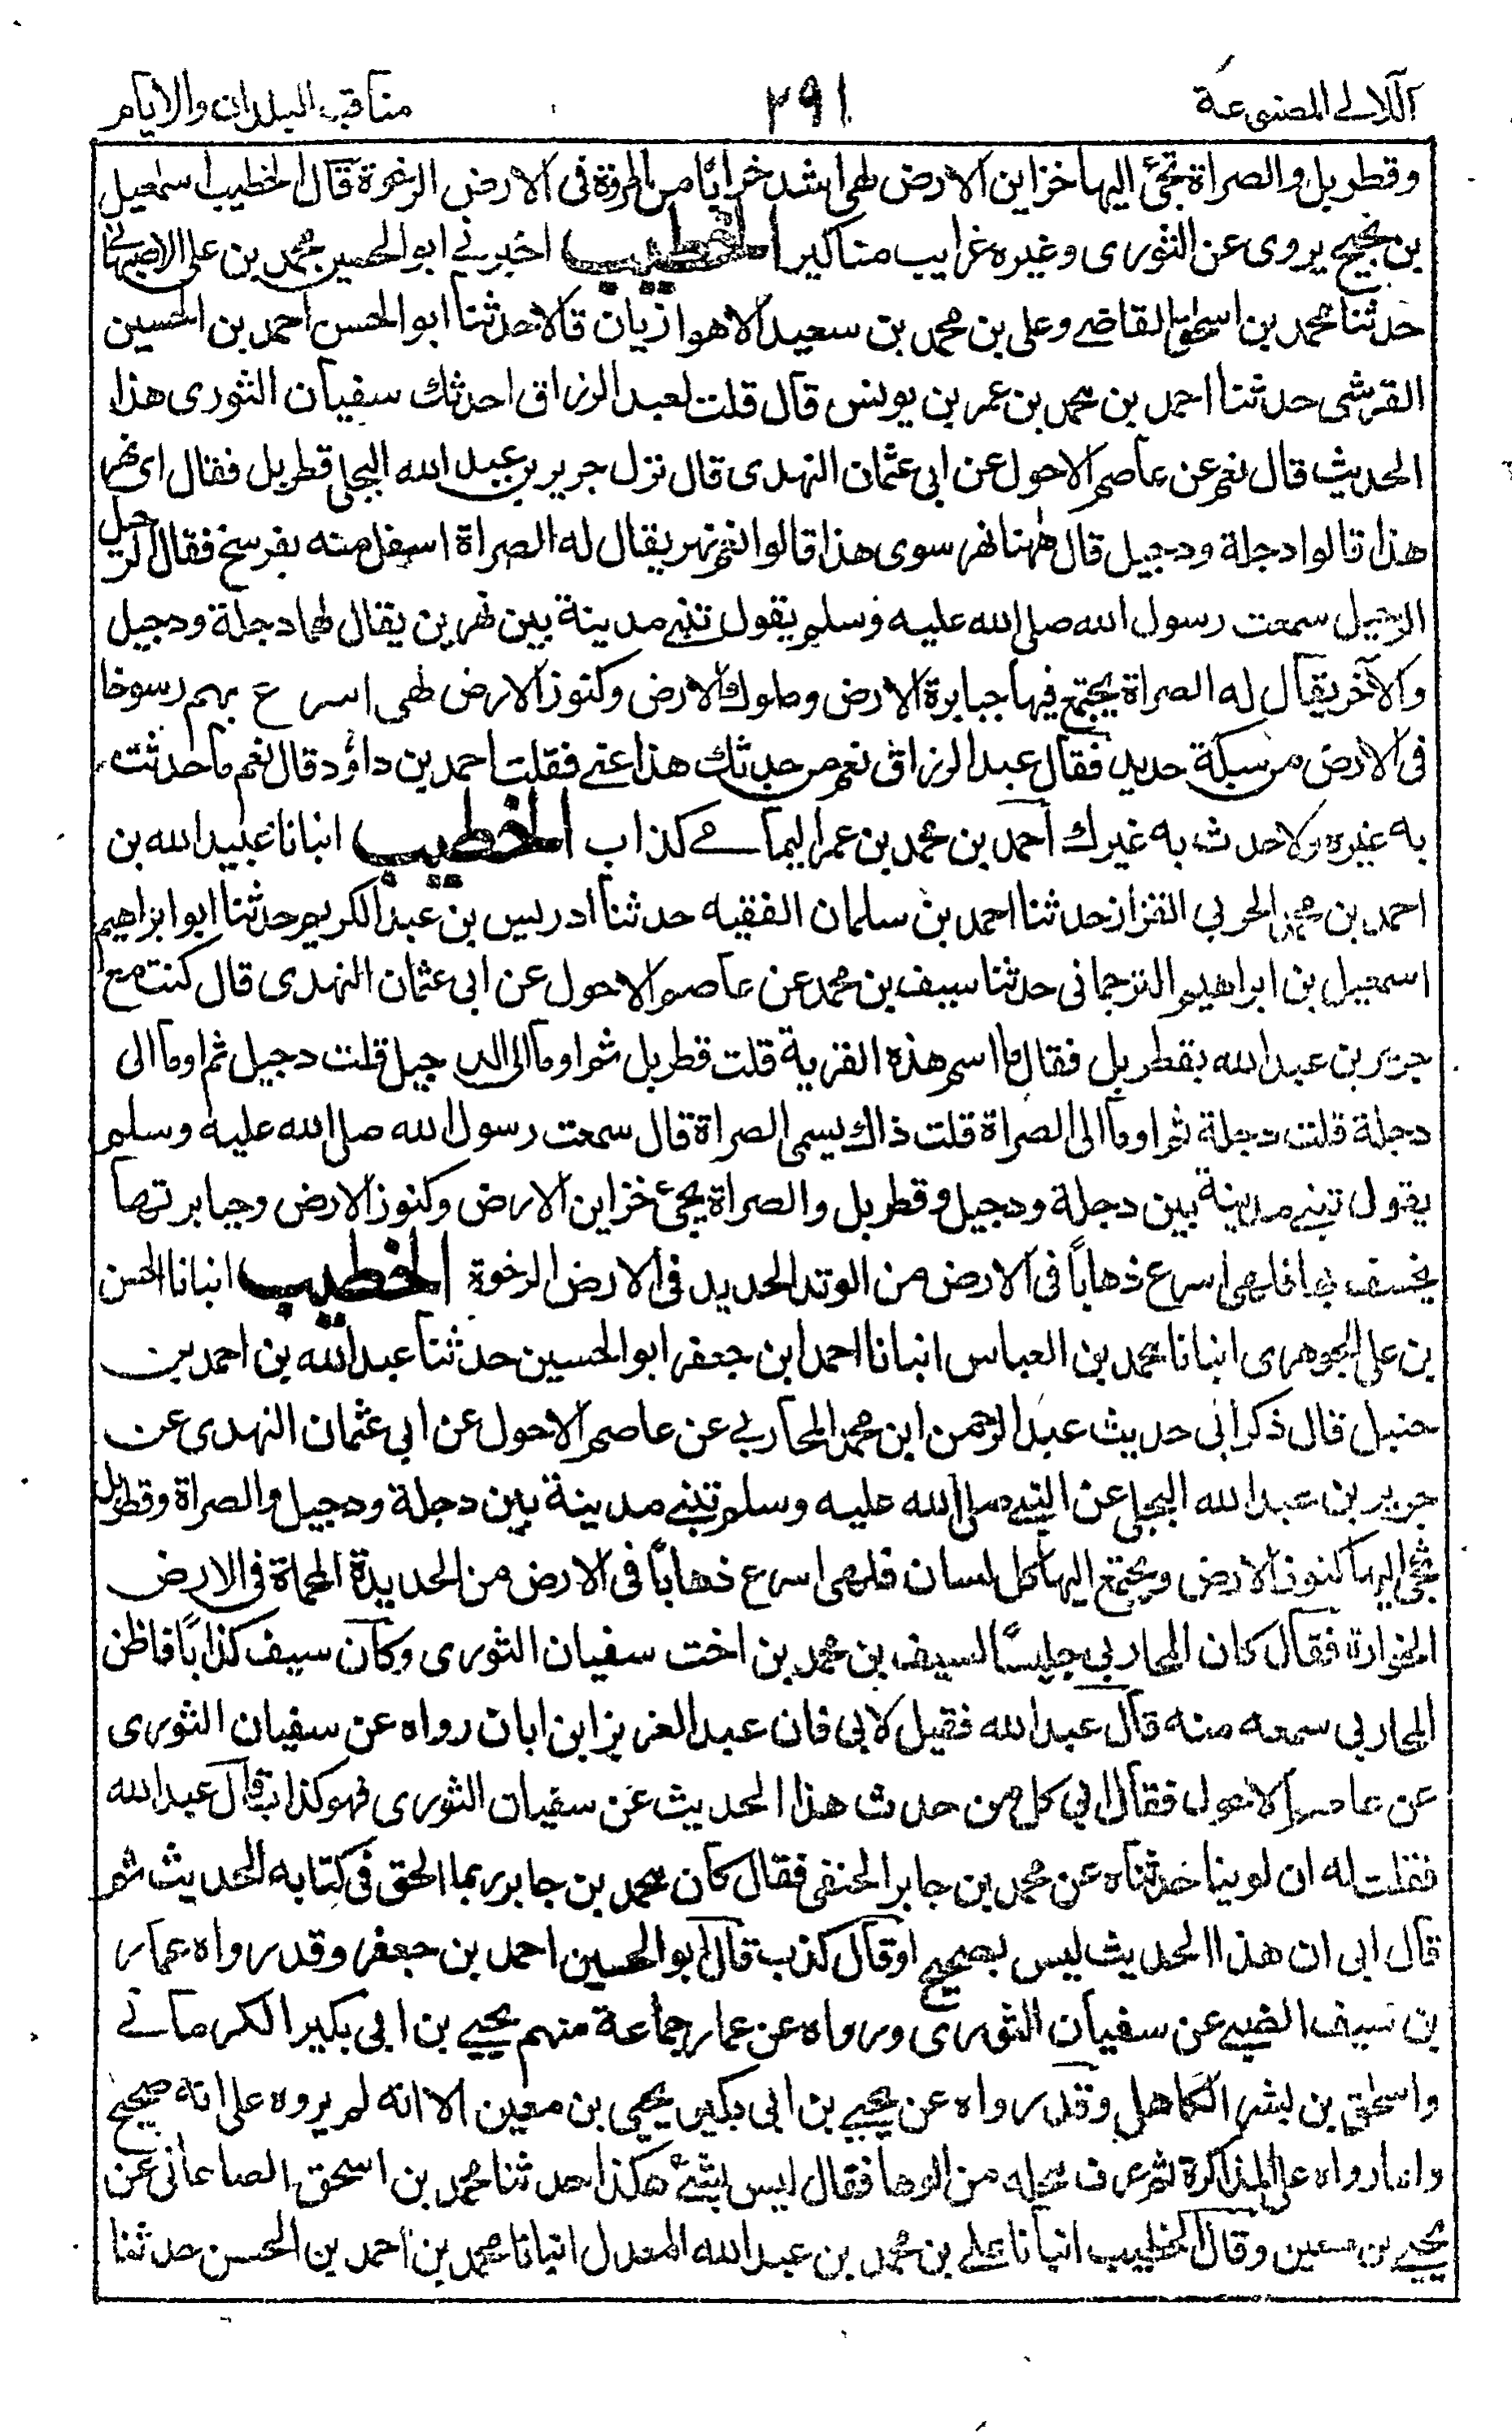 اللآلي المصنوعة ٢٩١ مناقب البلدان والايام
وقطربل والصراة تجئ اليها خزاين الارض لهى اشد خرابًا من المروة فى الارض الرخوة قال الخطيب اسمعيل
بن نجيح يروى عن الثورى وغيره غرايب مناكير الخطيب اخبرنے ابو الحسين محمد بن على الاصبهانے
حدثنا محمد بن اسحق القاضے وعلى بن محمد بن سعيد الاهوازيان قالا حدثنا ابو الحسن احمد بن الحسين
القرشى حدثنا احمد بن محمد بن عمر بن يونس قال قلت لعبد الرزاق احدثك سفيان الثورى هذا
الحديث قال نعم عن عاصم الاحول عن ابى عثمان النهدى قال نزل جرير بن عبد الله البجلى قطربل فقال اى نهر
هذا قالوا دجلة ودجيل قال ههنا نهر سوى هذا قالوا نعم نهر يقال له الصراة اسفل منه بفرسخ فقال الرحيل
الرحيل سمعت رسول الله صلى الله عليه وسلم يقول تبنے مدينة بين نهرين يقال لهما دجلة ودجيل
والآخر يقال له الصراة يجتمع فيها جبابرة الارض وملوك الارض وكنوز الارض لهى اسرع بهم رسوخا
فى الارض من سكة حديد فقال عبد الرزاق نعم من حدثك هذا عنے فقلت احمد بن داؤد قال نعم ما حدثت
به غيره ولا حدث به غيرك احمد بن محمد بن عمر اليمامے كذاب الخطيب انبانا عبيد الله بن
احمد بن محمد الحربي القزاز حدثنا احمد بن سلمان الفقيه حدثنا ادريس بن عبد الكريم حدثنا ابو ابراهيم
اسمعيل بن ابراهيم الترجمانى حدثنا سيف بن محمد عن عاصم الاحول عن ابى عثمان النهدى قال كنت مع
جرير بن عبد الله بقطربل فقال ما اسم هذه القرية قلت قطربل ثم اومأ الى الدجيل قلت دجيل ثم اومأ الى
دجلة قلت دجلة ثم اومأ الى الصراة قلت ذاك يسمى الصراة قال سمعت رسول الله صلى الله عليه وسلم
يقول تبنے مدينة بين دجلة ودجيل وقطربل والصراة يجئ خزاين الارض وكنوز الارض وجبابرتها
يخسف بها فلهى اسرع ذهاباً فى الارض من الوتد الحديد فى الارض الرخوة الخطيب انبانا الحسن
بن على الجوهرى انبانا محمد بن العباس انبانا احمد ابن جعفر ابو الحسين حدثنا عبد الله بن احمد بن
حنبل قال ذكر ابى حديث عبد الرحمن ابن محمد المحاربے عن عاصم الاحول عن ابى عثمان النهدى عن
جرير بن عبد الله البجلى عن النبے صلى الله عليه وسلم تبنے مدينة بين دجلة ودجيل والصراة وقطربل
تجئ اليها كنوز الارض ويجتمع اليها كل لسان فلهى اسرع ذهاباً فى الارض من الحديدة المحماة فى الارض
الخوارة فقال كان المحاربى جليسًا لسيف بن محمد بن اخت سفيان الثورى وكان سيف كذابًا فاظن
المحاربى سمعه منه قال عبد الله فقيل لابى فان عبد العزيز ابن ابان رواه عن سفيان الثورى
عن عاصم الاحول فقال ابى كل من حدث هذا الحديث عن سفيان الثورى فهو كذاب قال عبد الله
فقلت له ان لوينا حدثناه عن محمد بن جابر الحنفى فقال كان محمد بن جابر ربما الحق فى كتابه الحديث ثم
قال ابى ان هذا الحديث ليس بصحيح او قال كذب قال ابو الحسين احمد بن جعفر وقد رواه عمار
بن سيف الضبے عن سفيان الثورى ورواه عن عمار جماعة منهم يحيے بن ابى بكير الكرمانے
واسحق بن بشر الكاهلى وقد رواه عن يحيے بن ابى بكير يحيى بن معين الا انه لم يروه على انه صحيح
وانما رواه على المذاكرة ثم عرف محله من الوها فقال ليس بشئ هكذا حدثنا محمد بن اسحق الصاغانى عن
يحيے بن معين وقال الخطيب انبانا علے بن محمد بن عبد الله المعدل انبانا محمد بن احمد بن الحسن حدثنا